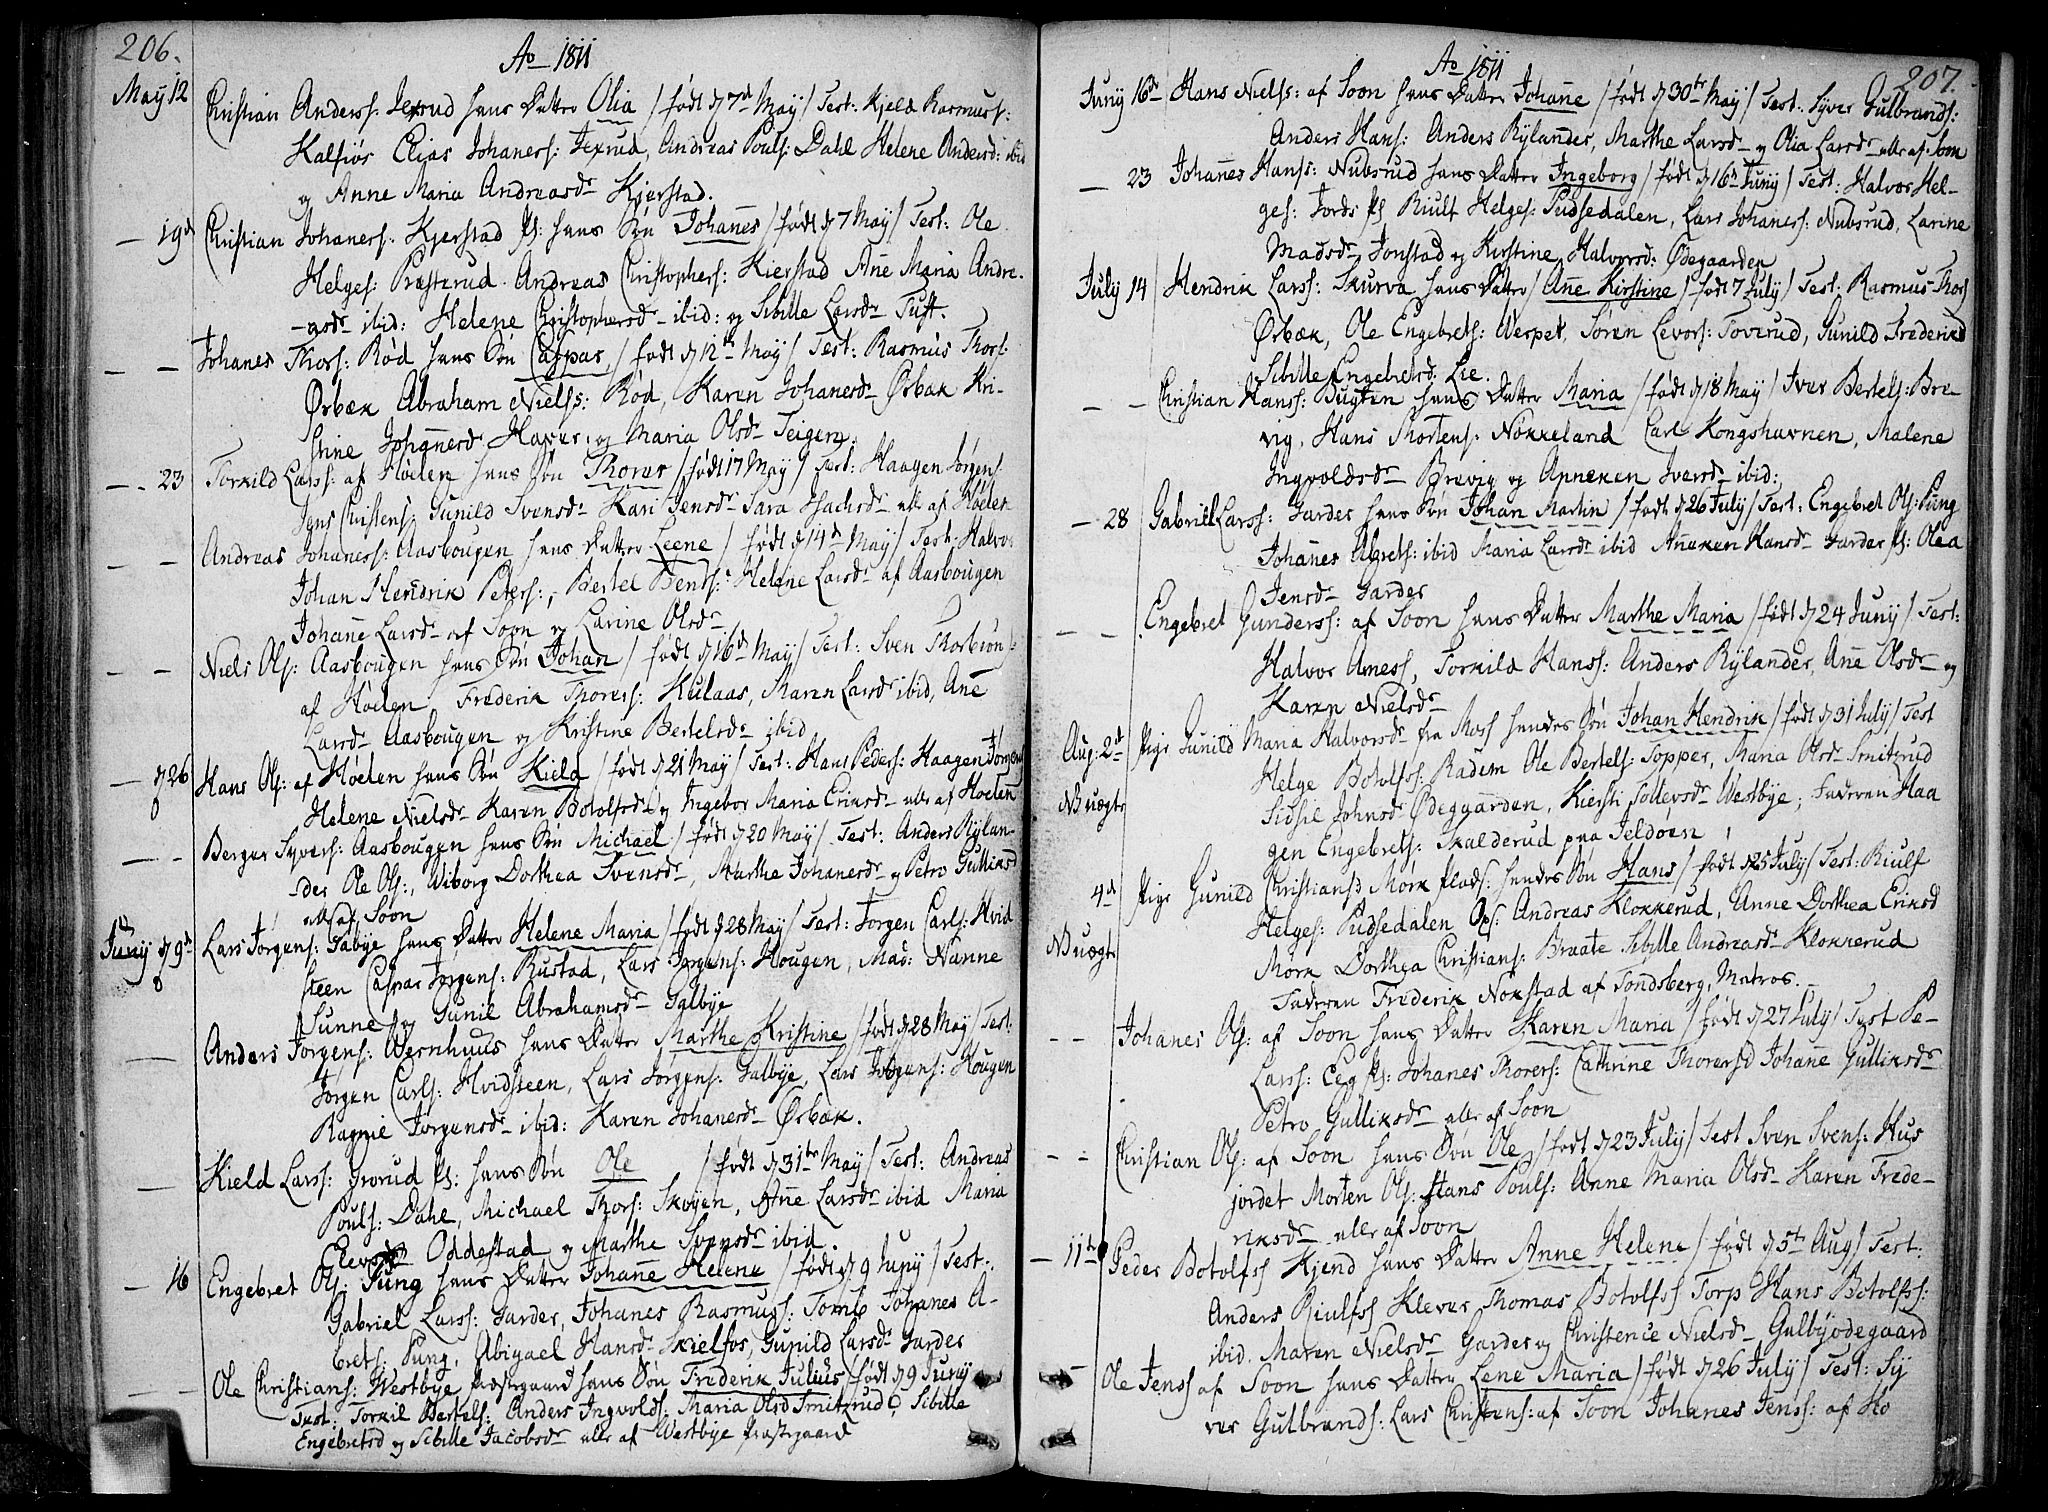 206.
Ao 1811
May 12 Christian Anderss: Jexrud hans Datter Olia / født d 7d May / Test: Kield Rasmuss:
Kalfiøs Elias Johaness: Jexrud, Andreas Pouls: Dahl Helene Andersd: ibid
og Anne Maria Andreasdr Kjerstad.
— 19d Christian Johaness: Kjerstad Pl: hans Søn Johannes / født d 7 May / Test: Ole
Helges: Præsterud Andreas Christophers: Kierstad Ane Maria Andre-
-asdr ibid: Helene Christophersdr ibid: og Sibille Larsdr Tuft.
— — Johanes Thors: Rød hans Søn Caspar / født d 12te May / Test: Rasmus Thors:
Ørbæk Abraham Niels: Rød, Karen Johanesdr Ørbæk Kri-
stine Johanesdr Haver, og Maria Olsdr Teigen.
— 23 Torkild Larss: af Høelen hans Søn Thorer / født 17 May / Test: Haagen Jørgens:
Jens Christens: Gunild Svensdr Kari Jensdr Sara Isachsdr alle af Høelen
— — Andreas Johaness: Aasbougen hans Datter Leene / født d 14d May / Test: Halvor
Johan Hendrik Peters:, Bertel Bents: Helene Larsdr af Aasbougen
Johane Larsdr af Soon og Larine Olsdr
— — Niels Ols: Aasbougen hans Søn Johan / født d 16d May / Test: Sven Thorbiøns:
af Høelen Frederik Thorers: Kulaas, Maren Larsdr ibid, Ane
Larsdr Aasbougen og Kristine Bertelsdr ibid
— d 26 Hans Ols: af Høelen hans Søn Kield / født d 21 May / Test: Hans Peders: Haagen Jørgens
Helene Nielsdr Karen Botolfsdr og Ingebor Maria Eriksdr alle af Høelen
— — Berger Syvers: Aasbougen hans Søn Michael / født d 20 May / Test: Anders Rylan-
der Ole Ols:, Wiborg Dorthea Svensdr, Marthe Johanesdr og Petro Gulliksd
alle af Soon
Juny d 9d Lars Jørgens: Galbye hans Datter Helene Maria / født d 28 May / Test: Jørgen Carls: Hvid
steen Caspar Jørgens: Rustad, Lars Jørgens: Hougen, Mad: Nanne
Sunne og Gunil Abrahamsdr Galbye
— Anders Jørgens: Wernhuus hans Datter Marthe Kristine / født d 28 May / Test:
Jørgen Carls: Hvidsteen, Lars Jørgens: Galbye, Lars Jørgens: Hougen
Ragnil Jørgensdr ibid: Karen Johanesdr Ørbæk.
— Kield Larss: Grorud Pl: hans Søn Ole / født d 31te May / Test: Andreas
Pouls: Dahl, Michael Thors: Skoyen, Ane Larsdr ibid Maria
Elevsdr Oddestad og Marthe Svensdr ibid.
— 16 Engebret Ols: Pung hans Datter Johane Helene / født d 9 Juny / Test:
Gabriel Larss: Garder, Johanes Rasmuss: Tomb Johanes A-
brets: Pung, Abigael Hansdr Kielfos, Gunild Larsdr Garder
— — Ole Christians: Westbye Præstegaard hans Søn Frederik Julius / født d 9 Juny
Test: Torkil Bertels: Anders Ingvolds: Maria Olsd Smitsrud, Sibille
Engebretsd og Sibille Jacobsdr alle af Westbye Præstegaard
207.
Ao 1811
Juny 16de Hans Niels: af Soon hans Datter Johane / født d 30te May / Test: Syver Gulbrands:
Anders Hans: Anders Rylander, Marthe Larsdr og Olia Larsdr alle af Soon
— 23 Johanes Hans: Nubsrud hans Datter Ingeborg / født d 16d Juny / Test: Halvor Hel-
ges: Jords Pl Riulf Helges: Pudsedalen, Lars Johanes: Nubsrud, Larine
Madsdr Jonstad og Kirstine Halvorsd: Ødegaarden
July 14 Hendrik Larss: Skurva hans Datter / Ane Kirstine / født 7 July / Test: Rasmus Thors
Ørbæk, Ole Engebrets: Wespet, Søren Levors: Toverud, Gunild Frederiksd
Sibille Engebretsd: Lie.
— — Christian Hans: Bugten hans Datter Maria / født d 18 May / Iver Bertels: Bre-
vig, Hans Mortens: Nokkeland Carl Kongshavnen, Malene
Ingvoldsdr Brevig og Anneken Iversdr ibid:
— 28 Gabriel Larss: Garder hans Søn Johan Martin / født d 26 July / Test: Engebret Ols: Pung
Johanes Abrets: ibid Maria Larsdr ibid Aneken Hansdr Garder Pl: Olea
Jensdr Garder
— — Engebret Gunderss: af Soon hans Datter Marthe Maria / født d 24 Juny / Test:
Halvor Aness, Torkild Hanss: Anders Rylander, Ane Olsdr og
Karen Nielsdr
Aug: 2d Pige Gunild Maria Halvorsdr fra Moss hendes Søn Johan Hendrik / født d 31 July / Test
NB uægte Helge Botolfs: Radem Ole Bertels: Topper, Maria Olsdr Smitsrud
Sidsil Johnsdr Ødegaarden, Kiersti Tollevsdr Westbye; Faderen Haa
gen Engebrets: Skalderud paa Jeldøen
4d Pige Gunild Christiansd Mork Plads: hendes Søn Hans / født d 25 July / Test: Riulf
NB uægte Helges: Pudsedalen Ops: Andreas Klokkerud, Anne Dorthea Eriksd
Mork Dorthea Christians: Braate Sibille Andreasdr Klokkerud
Faderen Frederik Nokstad af Tondsberg, Matros.
— — Johanes Ols: af Soon hans Datter Karen Maria / født d 27 July / Test Pe-
Larss: Eeg Pl: Johanes Thorers: Cathrine Thorersd Johane Gulliksdr
Petro Gulliksdr alle af Soon
— — Christian Ols: af Soon hans Søn Ole / født d 23 July / Test Sven Svens: Hus
jordet Morten Ols: Hans Pouls: Anne Maria Olsdr Karen Frede-
riksdr alle af Soon
— 11te Peder Botolfss Kjend hans Datter Anne Helene / født d 5te Aug / Test:
Anders Riulfss Klever Thomas Botolfss Torp Hans Botolfss:
ibid. Maren Nielsdr Garder og Christence Nielsdr Galbyødegaard
— Ole Jenss af Soon hans Datter Lene Maria / født d 26 July / Test: Sy
ver Gulbrands: Lars Christens: af Soon Johanes Jenss: af Ho